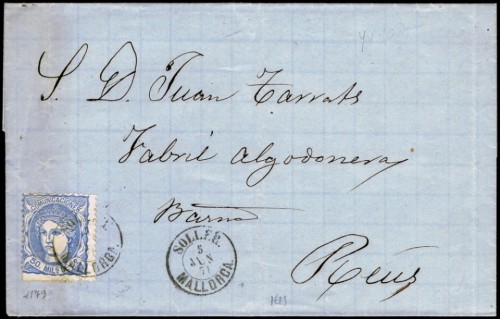 S. D. Juan Tarrats
Fabril Algodonera
Barna
Reus
COMUNICACIONES
50 MILS
MALLORCA.
SOLLER.
5
JUN
71
MALLORCA.